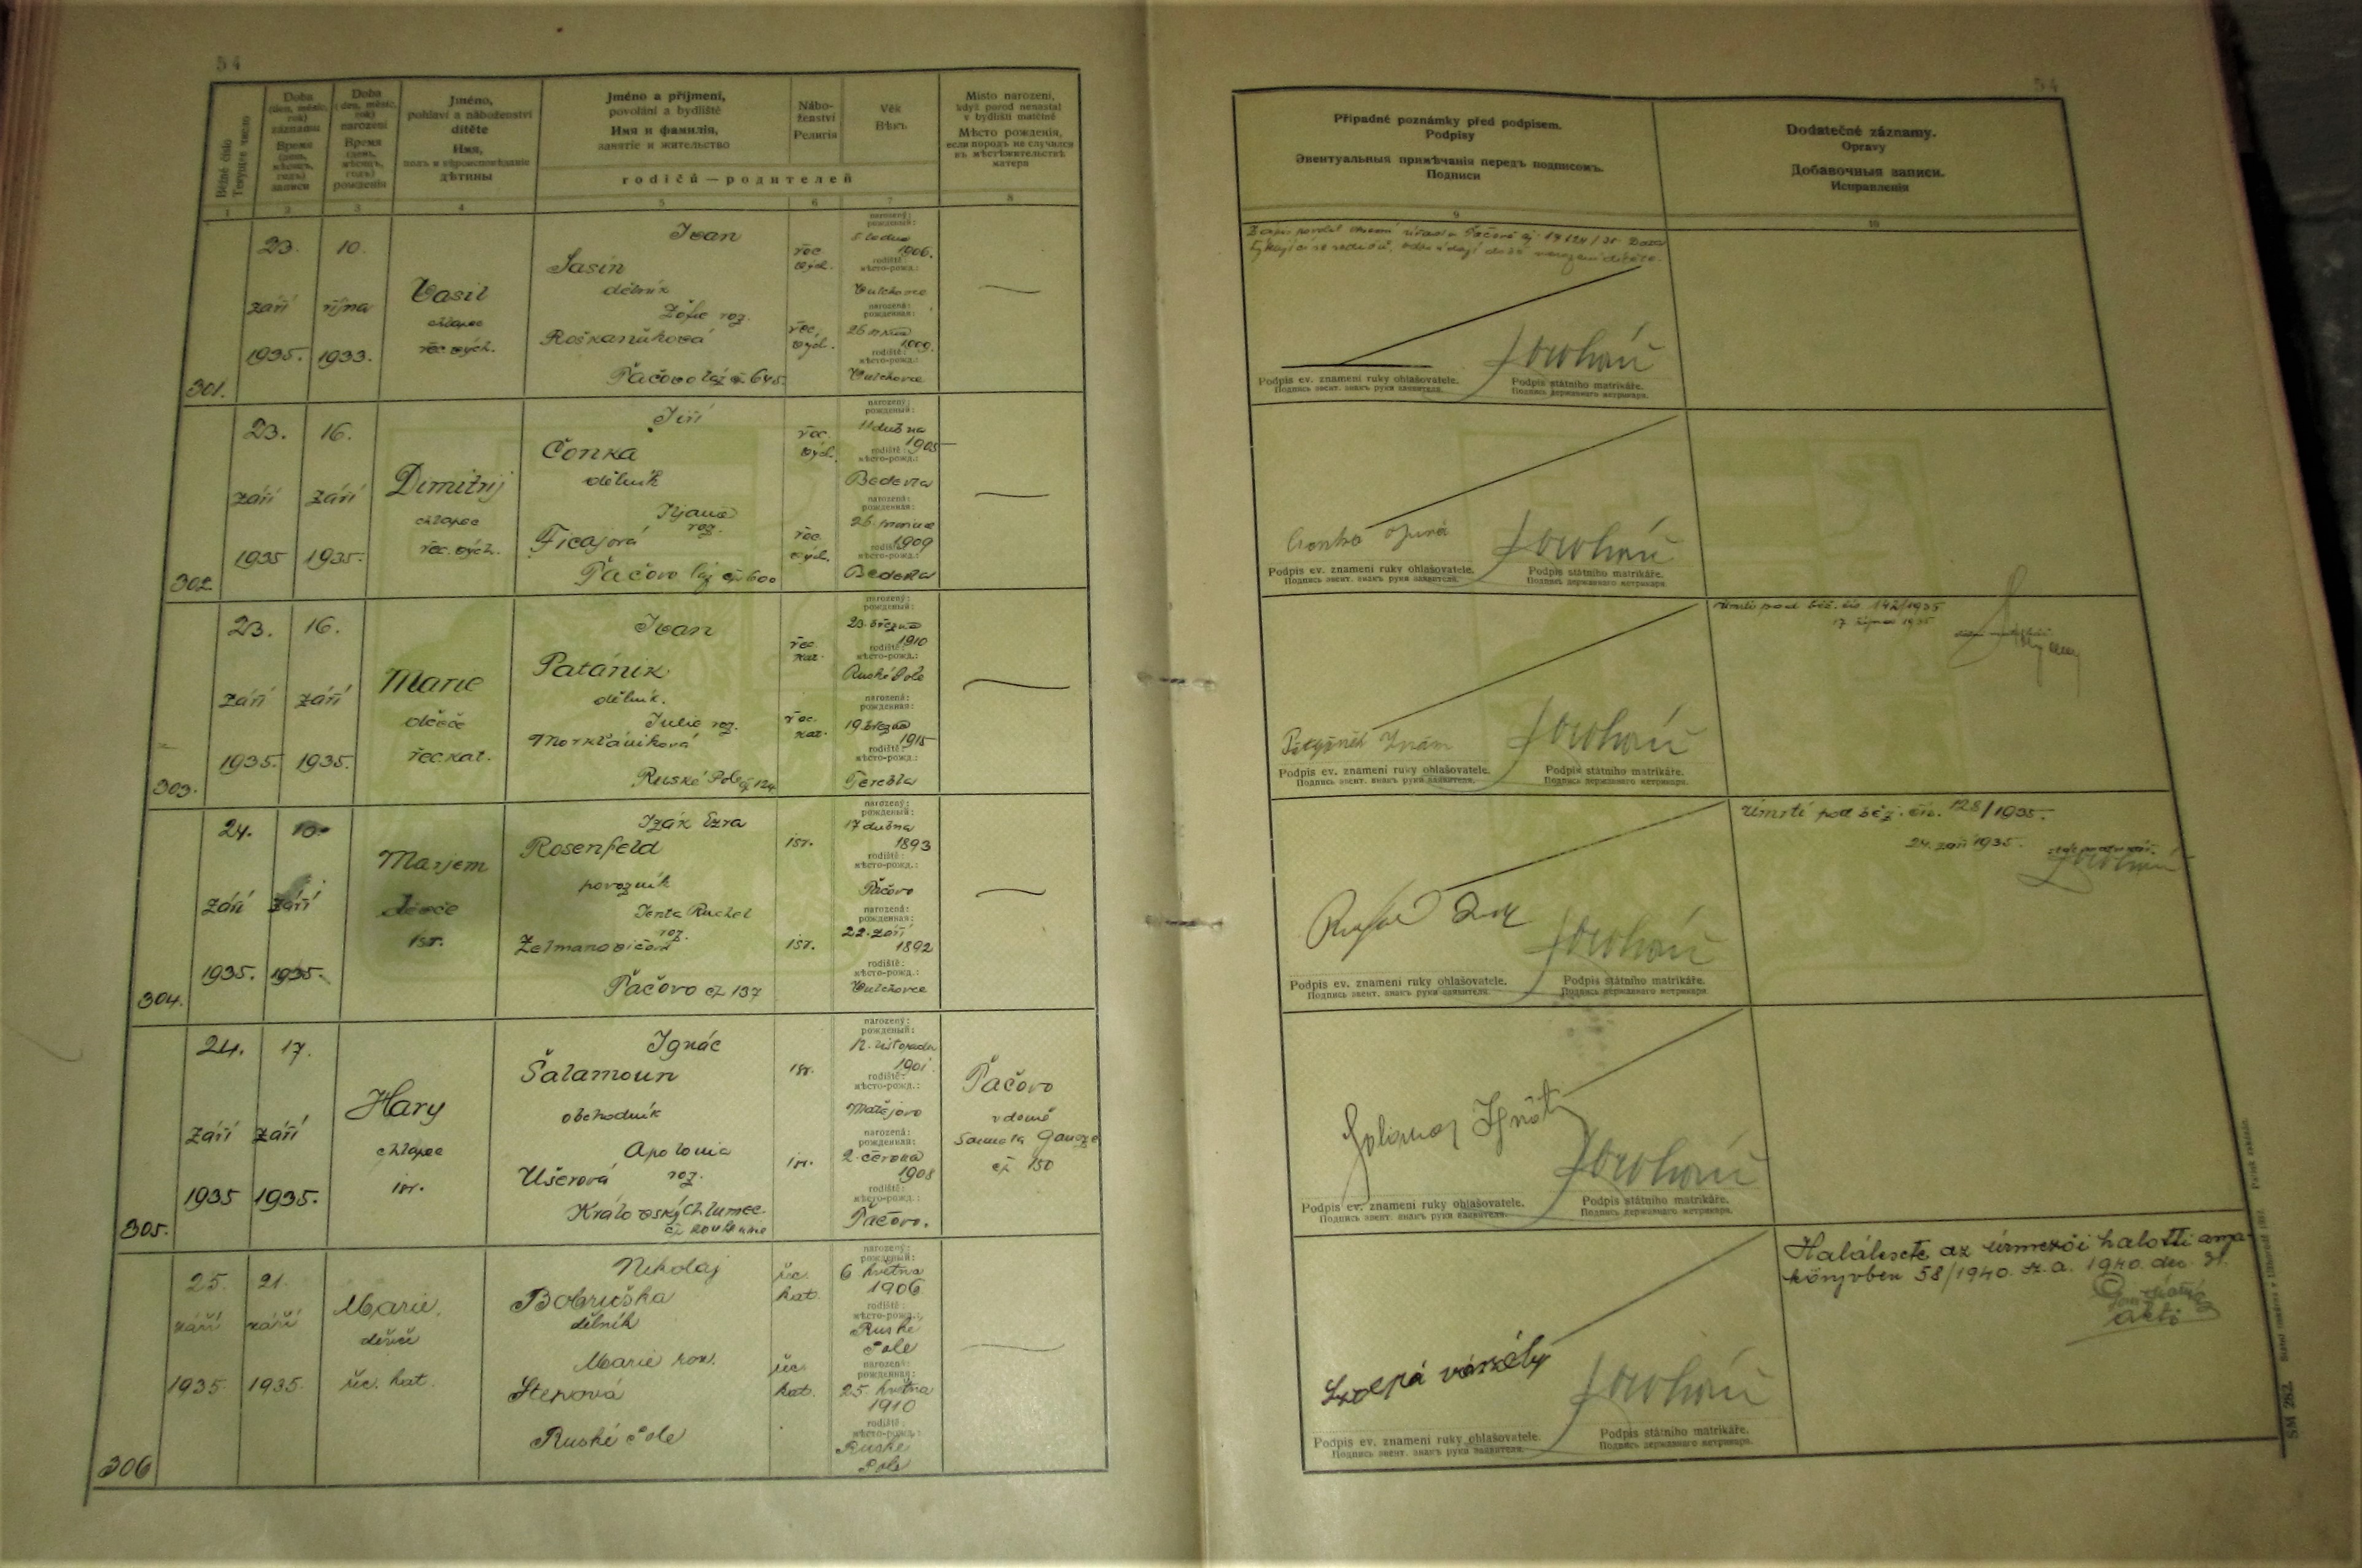 54
Běžné číslo
Текущее число
Doba
(den, měsíc,
rok)
záznamu
Время
(день,
мѣсяцъ,
годъ)
записи
Doba
(den, měsíc,
rok)
narození
Время
(день,
мѣсяцъ,
годъ)
рожденія
Jméno,
pohlaví a náboženství
dítěte
Имя,
полъ и вѣроисповѣданіе
дѣтины
Jméno a příjmení,
povolání a bydliště
Имя и фамилія,
занятіе и жительство
rodičů — родителей
Nábo-
ženství
Религія
Věk
Вѣкъ
Místo narození,
když porod nenastal
v bydlišti matčině
Мѣсто рожденія,
если породъ не случился
въ мѣстѣжительствѣ
матери
1 2 3 4 5 6 7 8
301.
23.
září
1935.
10.
října
1933.
Vasil
chlapec
řec. vých.
Ivan
Sasin
dělník
Žofie roz.
Roškaňuková
řec
vých.
řec.
vých.
narozený:
рожденый:
1906.
rodiště:
мѣсто-рожд.:
Vulchovce
narozená:
рожденная:
1909.
rodiště:
мѣсто-рожд.:
Vulchovce
302.
23.
září
1935
16.
září
1935.
Dimitrij
chlapec
řec. vých.
Jiří
Čonka
dělník
roz.
Ficajová
Ťačovo čp 600
řec.
vých.
řec.
vých.
narozený:
рожденый:
11 dubna
1905
rodiště:
мѣсто-рожд.:
Bedevla
narozená:
рожденная:
1909
rodiště:
мѣсто-рожд.:
Bedevla
303.
23.
září
1935.
16.
září
1935.
Marie
děvče
řec. kat.
Ivan
Patánik
dělník.
Julie roz.
Ruské Pole čp 124
řec.
kat.
řec.
kat.
narozený:
рожденый:
23. března
1910
rodiště:
мѣсто-рожд.:
Ruské Pole
narozená:
рожденная:
19 března
1915
rodiště:
мѣсто-рожд.:
Terebla
304.
24.
září
1935.
10.
září
1935.
Marjem
děvče
isr.
Izák Ezra
Rosenfeld
povozník
Jenta Ruchel
roz.
Zelmanovičová
Ťačovo čp 137
isr.
isr.
narozený:
рожденый:
17 dubna
1893
rodiště:
мѣсто-рожд.:
Ťačovo
narozená:
рожденная:
22. září
1892
rodiště:
мѣсто-рожд.:
Vulchovce
305.
24.
září
1935
17.
září
1935.
Hary
chlapec
isr.
Ignác
Šalamoun
obchodník
Apolonia
Ušerová roz.
Královský Chlumec
isr.
isr.
narozený:
рожденый:
12. listopadu
1901.
rodiště:
мѣсто-рожд.:
Matějovo
narozená:
рожденная:
2. června
1908
rodiště:
мѣсто-рожд.:
Ťačovo.
Ťačovo
v domě
čp 150
306
25.
září
1935.
21.
září
1935.
Marie,
děvče
řec. kat.
Nikolaj
Bobruška
dělník
Marie roz.
Štepová
Ruské Pole
řec.
kat.
řec.
kat.
narozený:
рожденый:
6 května
1906
rodiště:
мѣсто-рожд.:
Ruské
Pole
narozená:
рожденная:
25. května
1910
rodiště:
мѣсто-рожд.:
Ruské
Pole
54
Případné poznámky před podpisem.
Podpisy
Эвентуальныя примѣчанія передъ подписомъ.
Подписи
Dodatečné záznamy.
Opravy
Добавочныя записи.
Исправленія
9 10
Podpis ev. znamení ruky ohlašovatele.
Подпись эвент. знакъ руки заявителя.
Podpis státního matrikáře.
Подпись державного метрикаря.
Podpis ev. znamení ruky ohlašovatele.
Подпись эвент. знакъ руки заявителя.
Podpis státního matrikáře.
Подпись державного метрикаря.
Úmrtí pod běž. čís. 142/1935
17. října 1935
Podpis ev. znamení ruky ohlašovatele.
Подпись эвент. знакъ руки заявителя.
Podpis státního matrikáře.
Подпись державного метрикаря.
Úmrtí pod běž. čís. 128/1935.
24. září 1935.
Podpis ev. znamení ruky ohlašovatele.
Подпись эвент. знакъ руки заявителя.
Podpis státního matrikáře.
Подпись державного метрикаря.
Podpis ev. znamení ruky ohlašovatele.
Подпись эвент. знакъ руки заявителя.
Podpis státního matrikáře.
Подпись державного метрикаря.
Halálesete az úrmezői halotti anya-
könyvben 58/1940. sz. a. 1940. dec. 31.
Podpis ev. znamení ruky ohlašovatele.
Подпись эвент. знакъ руки заявителя.
Podpis státního matrikáře.
Подпись державного метрикаря.
SM 282.